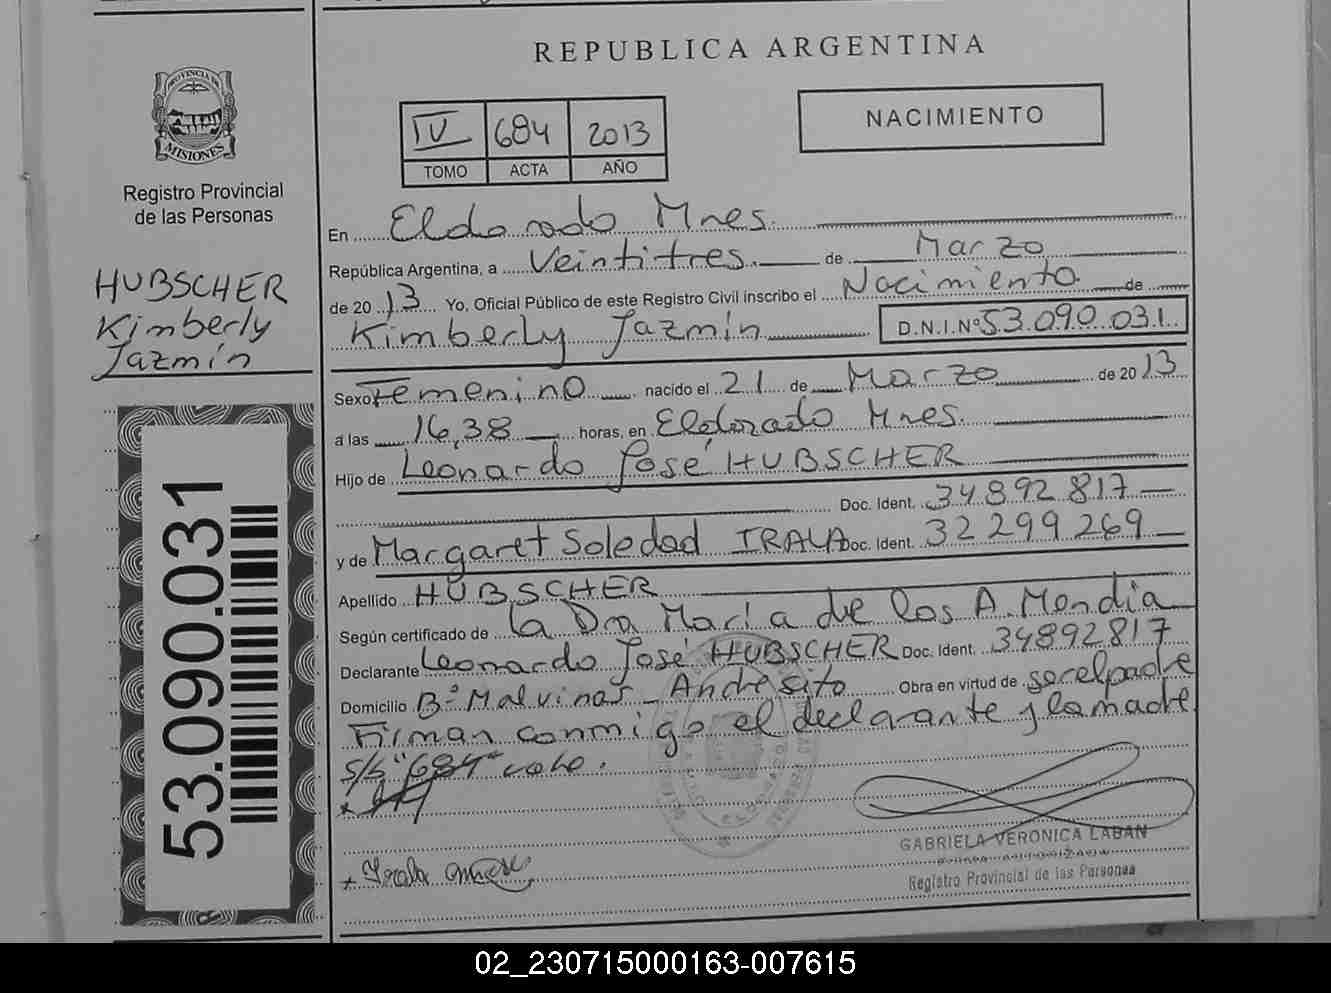 REPUBLICA ARGENTINA
PROVINCIA DE
MISIONES
Registro Provincial
de las Personas
IV 684 2013
TOMO ACTA AÑO
NACIMIENTO
HUBSCHER
Kimberly
Jazmín
53.090.031
En Eldorado Mnes.
República Argentina, a Veintitres. de Marzo
de 2013 Yo, Oficial Público de este Registro Civil inscribo el Nacimiento de
Kimberly Jazmín D.N.I.Nº 53.090.031
Sexo Femenino nacido el 21 de Marzo de 2013
a las 16,38 horas, en Eldorado Mnes.
Hijo de Leonardo José HUBSCHER
Doc. Ident. 34892817
y de Margaret Soledad IRALA Doc. Ident. 32299269
Apellido HUBSCHER
Según certificado de la Dra María de los A. Mendia
Declarante Leonardo José HUBSCHER Doc. Ident. 34892817
Domicilio Bº Malvinas - Andresito Obra en virtud de ser el padre
Firman conmigo el declarante y la madre
s/b "684" vale.
GABRIELA VERONICA LABAN
Registro Provincial de las Personas
02_230715000163-007615